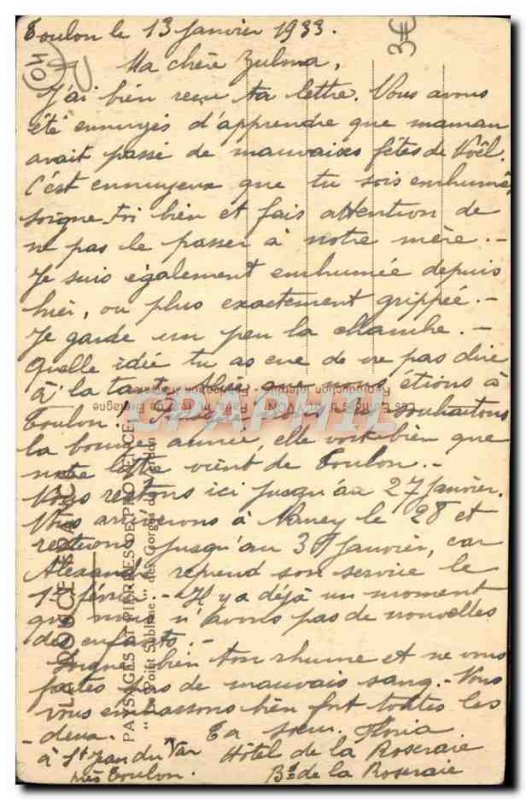 Toulon le 13 Janvier 1933.
3€
04
Ma chère Zulma,
J'ai bien reçu ta lettre. Vous avons
été ennuyés d'apprendre que maman
avait passé de mauvaises fêtes de Noël.
C'est ennuyeux que tu sois enrhumée
soigne toi bien et fais attention de
ne pas le passer à notre mère. -
Je suis également enrhumée depuis
hier, ou plus exactement grippée. -
Je garde un peu la chambre. -
Quelle idée tu as eue de ne pas dire
à la tante que nous étions à
Toulon. souhaitons
la bonne année, elle voit bien que
notre lettre vient de Toulon. -
Nous restons ici jusqu'au 27 Janvier.
Nous arriverons à Nancy le 28 et
resterons jusqu'au 31 Janvier, car
reprend son service le
1er février. - Il y a déjà un moment
que nous n'avons pas de nouvelles
des enfants. -
Soigne bien ton rhume et ne vous
faites pas de mauvais sang. - Vous
vous embrassons bien fort toutes les
deux. Ta sœur, Floria
à St Jean du Var Hôtel de la Roseraie
près Toulon. Bd de la Roseraie
LA DOUCE FRANCE
PAYSAGES ET PIERRES DE PROVENCE
"Le Point Sublime" des Gorges du Verdon
CPAPHIL